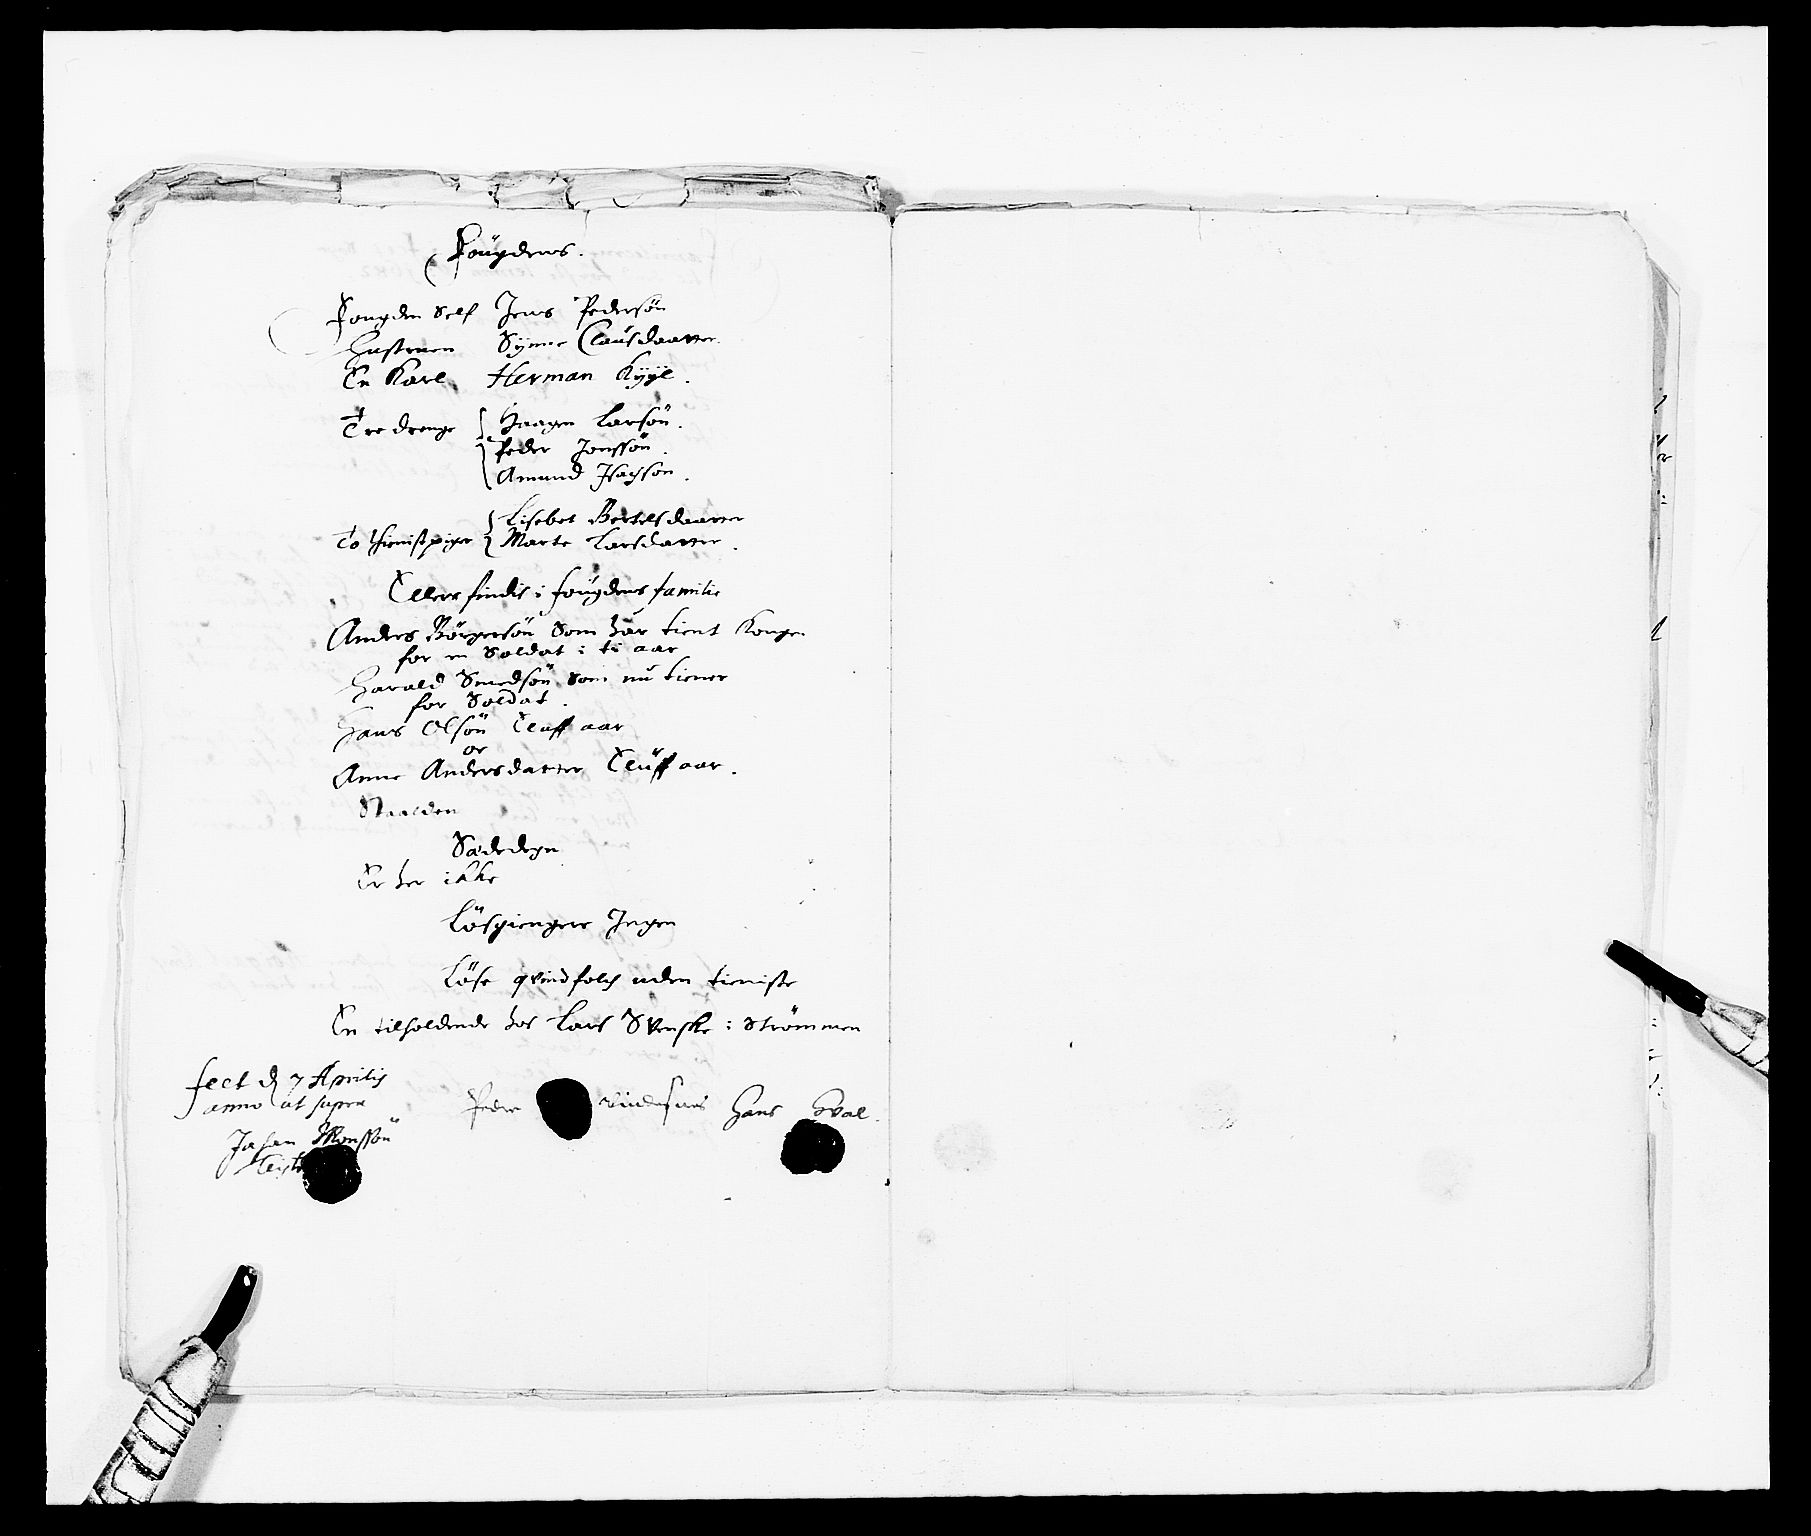 Fougdens.
Fougden Self Jens Pedersön
Hustruen Synne Clausdaatter
En Karl Herman Kyyl.
Tre drenge Haagen Larsön.
Peder Jonssön.
Amund Isachsön.
To thienistpiger Lisebet Bertelsdaatter
Marte Larsdatter.
Ellers findis i fougdens familie
Anders Börgersön som har tient Kongen
for en Soldat i ti aar
Harald Smedsön som nu tiener
for Soldat.
Hans Olsön Elleff aar
oc
Anne Andersdatter Elluff aar.
Sædedegn
Er her ikke
Lösgiengere Ingen
Löse qvindfolch uden tieniste
En tilholdende hos Lars Svenske i Strömmen
fect d 7 Aprilis
anno ut supra
Johan Monssön
Peder Hans Hval.